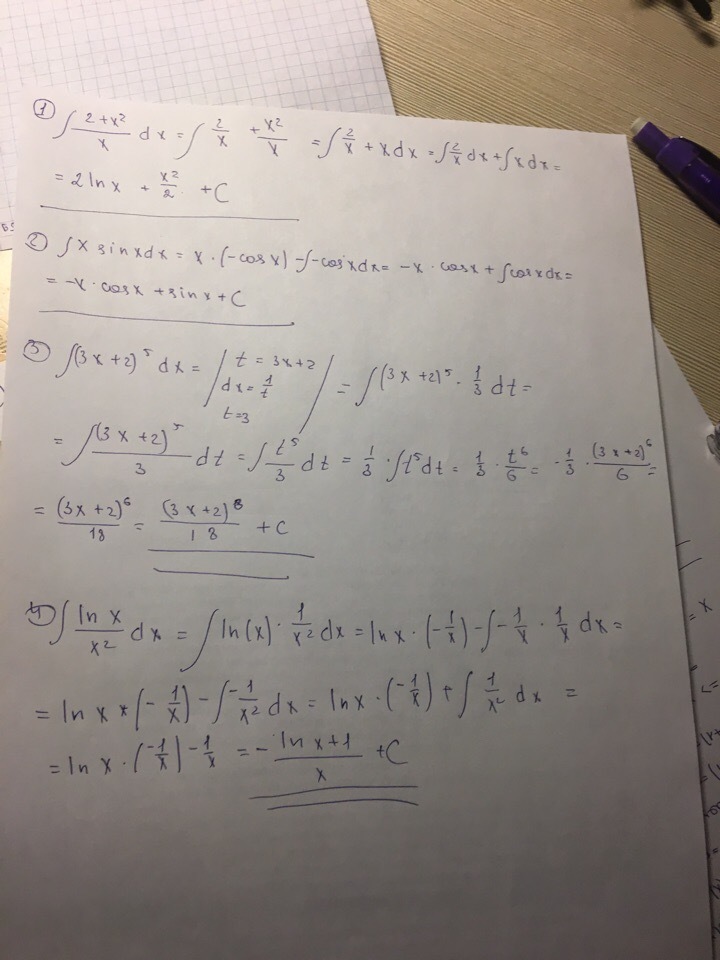 ① ∫ (2+x²)/x dx = ∫ 2/x + x²/x = ∫ 2/x + x dx = ∫ 2/x dx + ∫ x dx =
= 2 ln x + x²/2 + C
② ∫ x sin x dx = x · (-cos x) - ∫ -cos x dx = -x · cos x + ∫ cos x dx =
= -x · cos x + sin x + C
③ ∫ (3x+2)⁵ dx = | t = 3x+2
dx = 1/t
t = 3 | = ∫ (3x+2)⁵ · 1/3 dt =
= ∫ (3x+2)⁵/3 dt = ∫ t⁵/3 dt = 1/3 · ∫ t⁵ dt = 1/3 · t⁶/6 = 1/3 · (3x+2)⁶/6 =
= (3x+2)⁶/18 = (3x+2)⁸/18 + C
④ ∫ ln x/x² dx = ∫ ln(x) · 1/x² dx = ln x · (-1/x) - ∫ -1/x · 1/x dx =
= ln x * (-1/x) - ∫ -1/x² dx = ln x · (-1/x) + ∫ 1/x² dx =
= ln x · (-1/x) - 1/x = - (ln x + 1)/x + C